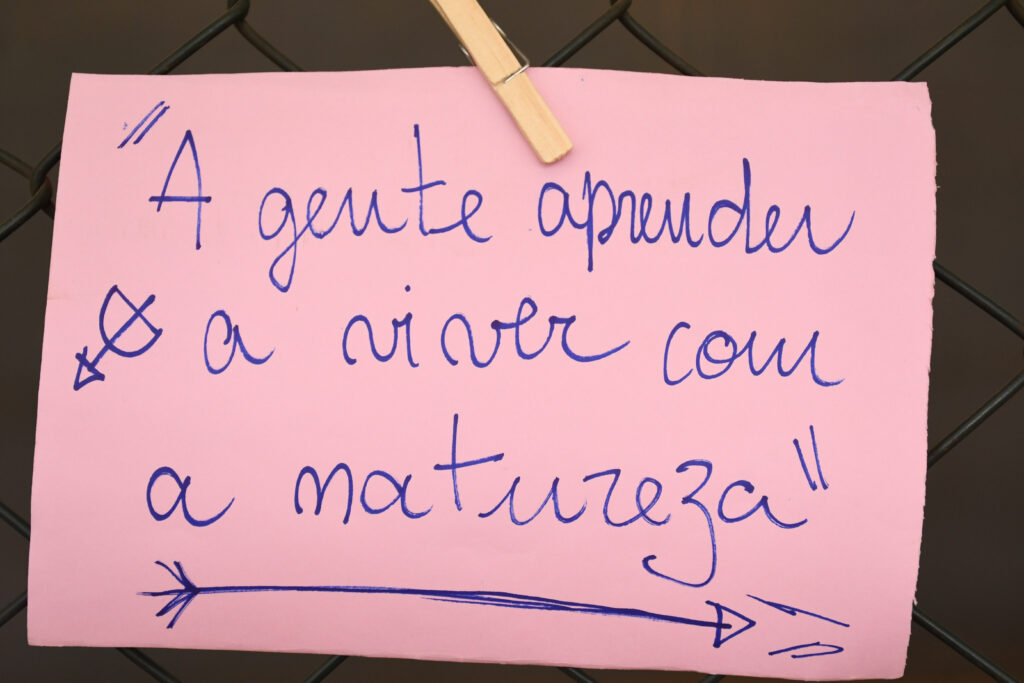 "A gente aprender
a viver com
a natureza"